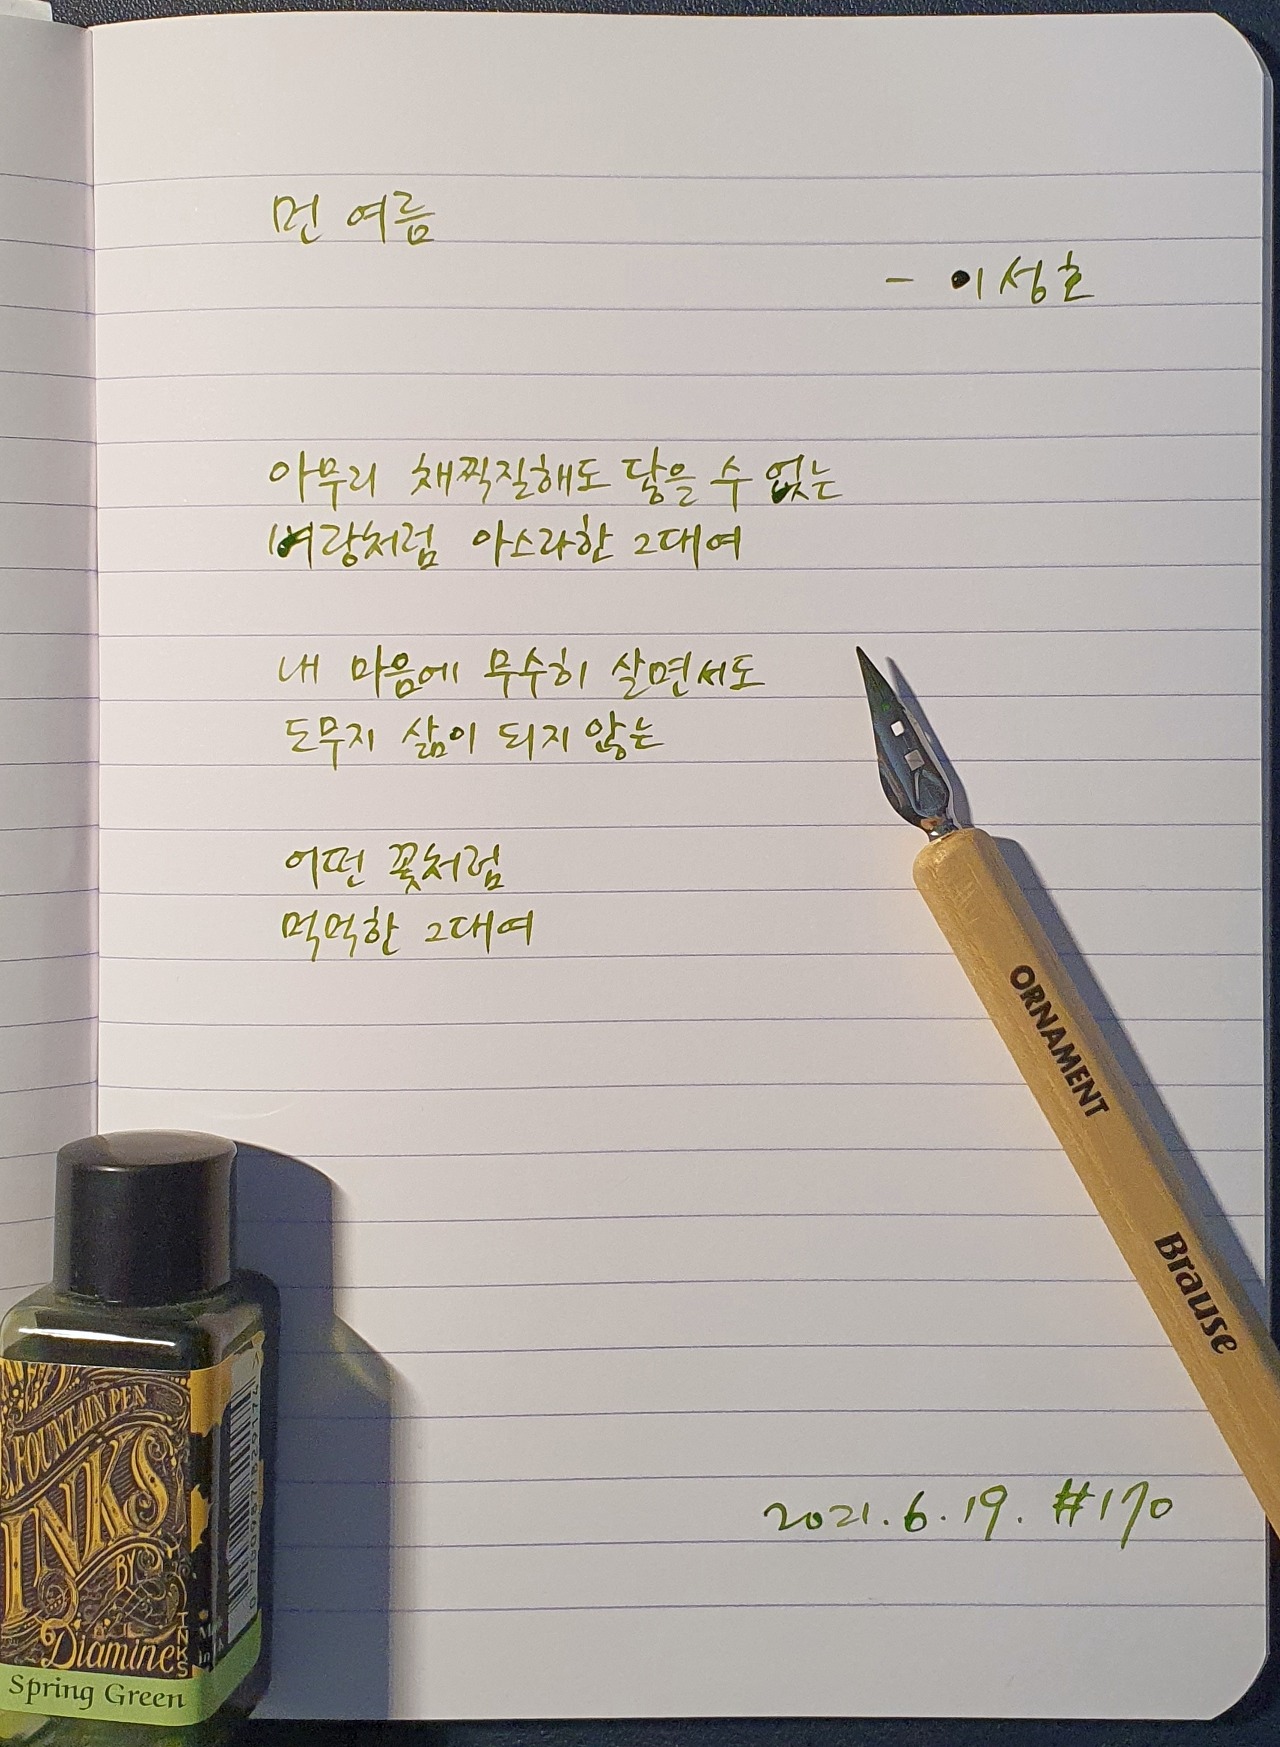 먼 여름
- 이성호
아무리 채찍질해도 닿을 수 없는
벼랑처럼 아스라한 그대여
내 마음에 무수히 살면서도
도무지 삶이 되지 않는
어떤 꽃처럼
먹먹한 그대여
ORNAMENT
Brause
2021.6.19. #170
FOUNTAIN PEN
INKS
BY
Diamine
INKS
Spring Green